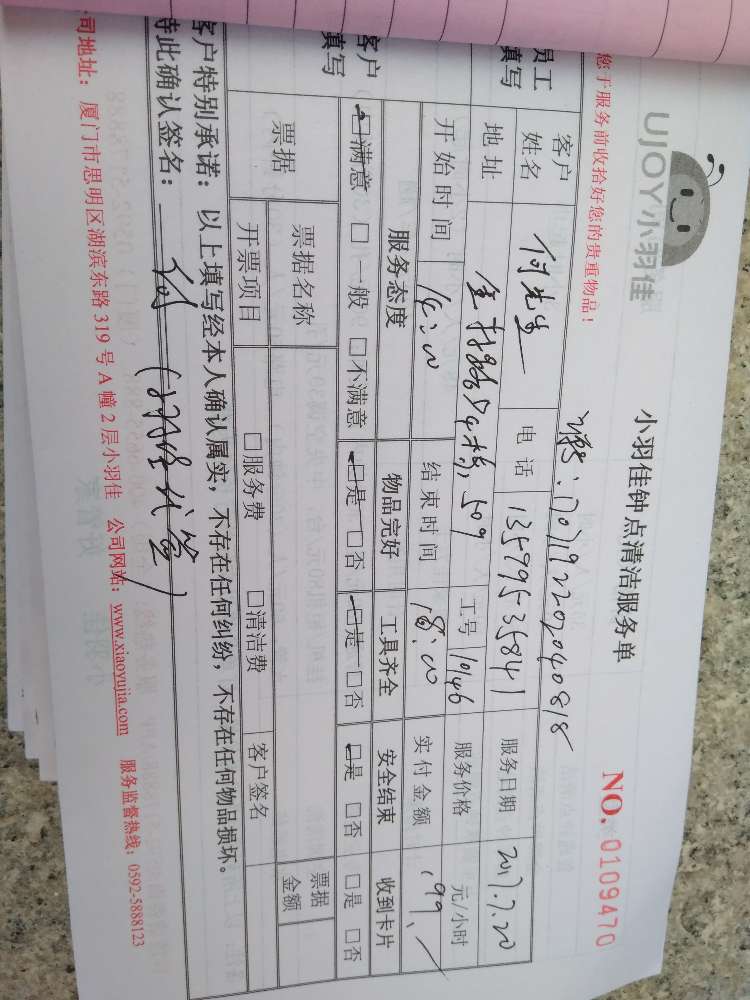 UJOY小羽佳
小羽佳钟点清洁服务单
NO. 0109470
您于服务前收拾好您的贵重物品!
207192202040818
员工 填写
客户 姓名 何先生 电话 13599535841 服务日期 2017.7.20
地址 509 工号 1046 服务价格 元/小时
开始时间 14:00 结束时间 18:00 实付金额 199.-
客户 填写
服务态度 物品完好 工具齐全 安全结束 收到卡片
☑满意 □一般 □不满意 ☑是 □否 ☑是 □否 ☑是 □否 □是 □否
票据 票据名称 票据金额
开票项目 □服务费 □清洁费 客户签名
客户特别承诺:以上填写经本人确认属实,不存在任何纠纷,不存在任何物品损坏。
特此确认签名:何
司地址:厦门市思明区湖滨东路319号A幢2层小羽佳 公司网站:www.xiaoyujia.com 服务监督热线:0592-5888123